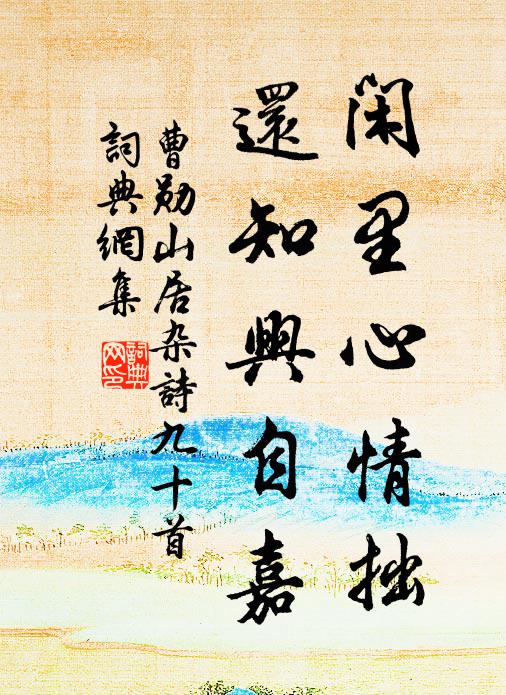 闲里心情拙
還知興自嘉
曹勋山居杂詩九十首
詞典網集
詞典網印